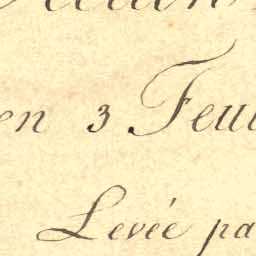 en 3 Feui
Levée pa